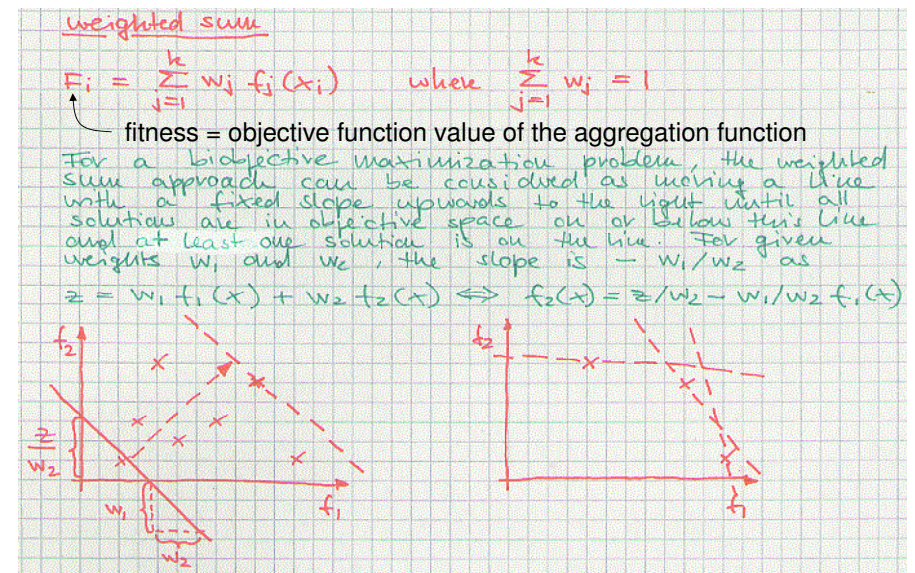 weighted sum
F_i = Σ_{j=1}^{k} w_j f_j(x_i) where Σ_{j=1}^{k} w_j = 1
fitness = objective function value of the aggregation function
For a biobjective maximization problem, the weighted
sum approach can be considved as moving a line
with a fixed slope upwards to the right until all
solutions are in objective space on or below this line
and at least one solution is on the line. For given
weights w_1 and w_2, the slope is - w_1/w_2 as
z = w_1 f_1(x) + w_2 f_2(x) ⇔ f_2(x) = z/w_2 - w_1/w_2 f_1(x)
f_2
z
w_2
w_1
w_2
f_1
f_2
f_1